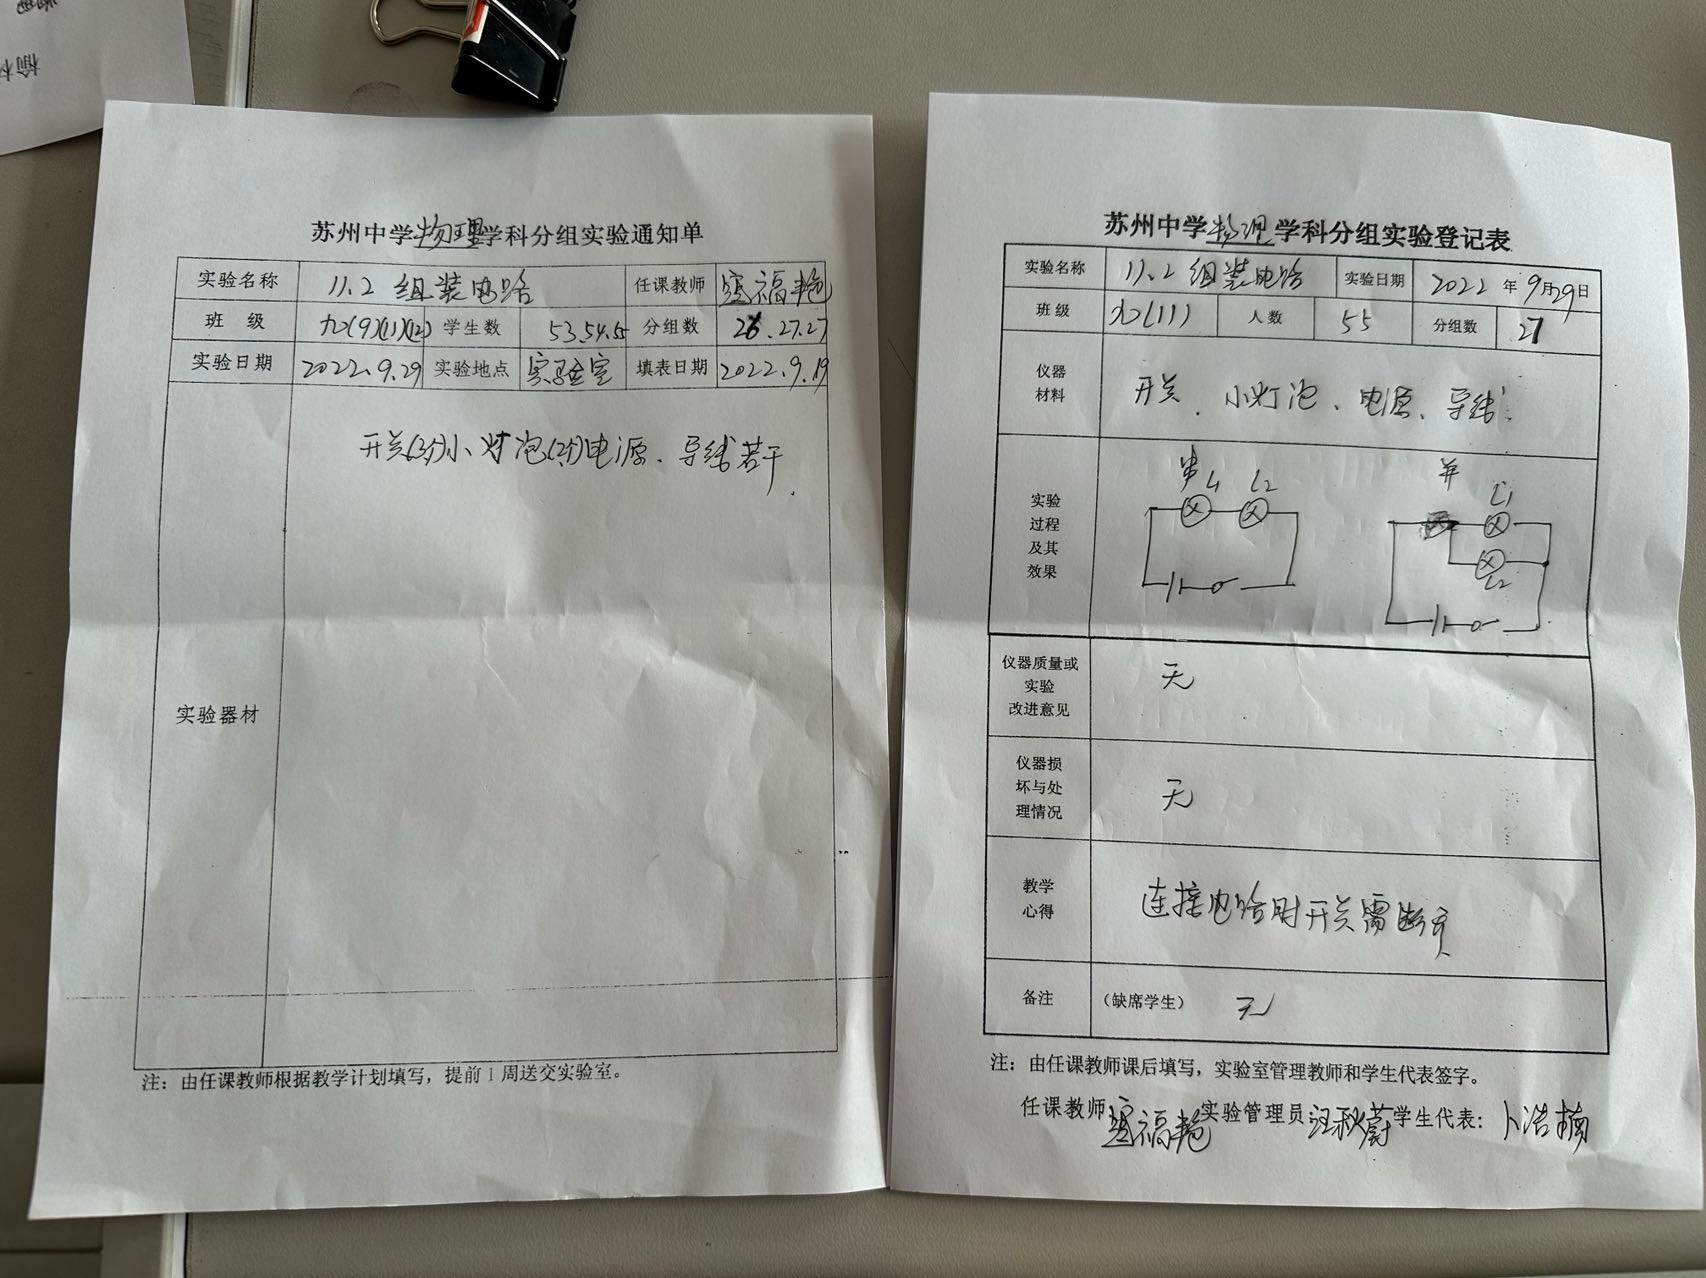 苏州中学物理学科分组实验通知单
实验名称 11.2 组装电路 任课教师 福艳
班 级 九(9)(11)(12) 学生数 53.54.55 分组数 26.27.27
实验日期 2022.9.29 实验地点 实验室 填表日期 2022.9.19
开关(3个)小灯泡(2个)电源、导线若干.
实验器材
注：由任课教师根据教学计划填写，提前1周送交实验室。
苏州中学物理学科分组实验登记表
实验名称 11.2 组装电路 实验日期 2022年9月29日
班级 九(11) 人数 55 分组数 27
仪器
材料
开关、小灯泡、电源、导线.
实验
过程
及其
效果
串 L1 L2
并 L1
L2
仪器质量或
实验
改进意见
无
仪器损
坏与处
理情况
无
教学
心得
连接电路时开关需断开
备注 （缺席学生） 无
注：由任课教师课后填写，实验室管理教师和学生代表签字。
任课教师 福艳 实验管理员 汪秋蔚 学生代表：卜浩楠